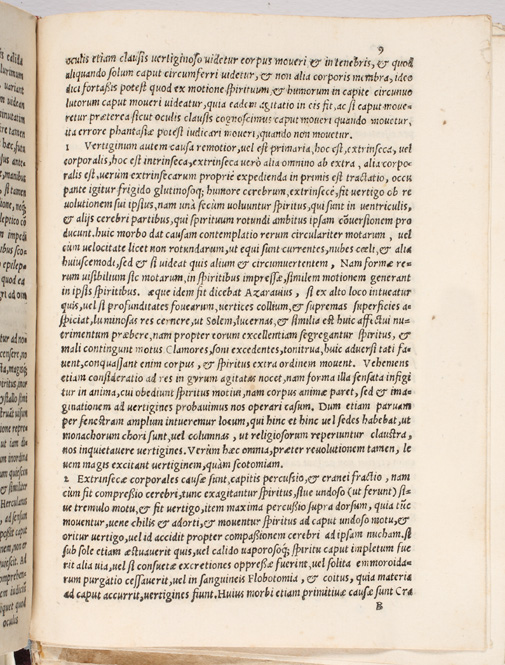 9
oculis etiam clausis vertiginoso videtur corpus moveri & in tenebris, & quod
aliquando solum caput circumferri videtur, & non alia corporis membra, ideo
dici fortassis potest quod ex motione spirituum & humorum in capite circunvo
lutorum caput moveri videatur, quia eadem agitatio in eis fit, ac si caput move=
retur præterea sicut oculis clausis cognoscimus caput moveri quando movetur,
ita errore phantasiæ potest iudicari moveri, quando non movetur.
1 Vertiginum autem causa remotior, vel est primaria, hoc est, extrinseca, vel
corporalis, hoc est intrinseca, extrinseca verò alia omnino ab extra, alia corpo=
ralis est, verùm extrinsecarum propriè expedienda in primis est tractatio, occu
pante igitur frigido glutinosoq; humore cerebrum, extrinsecè, fit vertigo ob re
volutionem sui ipsius, nam unà secùm volvuntur spiritus, qui sunt in ventriculis,
& alijs cerebri partibus, qui spirituum rotundi ambitus ipsam cõversionem pro
ducunt. huic morbo dat causam contemplatio rerum circulariter motarum, vel
cùm velocitate licet non rotundarum, ut equi sunt currentes, nubes cœli, & alia
huiuscemodi, sed & si videat quis alium & circumvertentem, Nam formæ re=
rum visibilium sic motarum, in spiritibus impressæ, similem motionem generant
in ipsis spiritibus. æque idem fit dicebat Azaravius, si ex alto loco intueatur
quis, vel si profunditates fovearum, vertices collium, & supremas superficies a=
spiciat, luminosas res cernere, ut Solem, lucernas, & similia est huic affectui nu=
trimentum præbere, nam propter eorum excellentiam segregantur spiritus, &
mali contingunt motus Clamores, soni excedentes, tonitrua, huic adversi tati fa=
vent, conquassant enim corpus, & spiritus extra ordinem movent. Vehemens
etiam consideratio ad res in gyrum agitatas nocet, nam forma illa sensata infigi
tur in anima, cui obediunt spiritus motui, nam corpus animæ paret, sed & ima=
ginationem ad vertigines probavimus nos operari casum. Dum etiam parvam
per fenestram amplum intueremur locum, qui hinc et hinc vel sedes habebat, ut
monachorum chori sunt, vel columnas, ut religiosorum reperiuntur claustra,
nos inquietavere vertigines. Verùm hæc omnia, præter revolutionem tamen, le
vem magis excitant vertiginem, quàm scotomiam.
2 Extrinsecæ corporales causæ sunt, capitis percusio, & cranei fractio, nam
cùm fit compressio cerebri, tunc exagitantur spiritus, sive undoso (ut ferunt) si=
ve tremulo motu, & fit vertigo, item maxima percusio supra dorsum, quia tũc
moventur, venæ chilis & adorti, & moventur spiritus ad caput undoso motu, &
oritur vertigo, vel id accidit propter compassionem cerebri ad ipsam nucham. si
sub sole etiam æstuaverit quis, vel calido vaporosoq; spiritu caput impletum fue
rit alia via, vel si consuetæ excretiones oppressæ fuerint, vel solita emmoroida=
rum purgatio cessaverit, vel in sanguineis Flobotomia, & coitus, quia materia
ad caput accurrit, vertigines fiunt. Huius morbi etiam primitivæ causæ sunt Cra
B